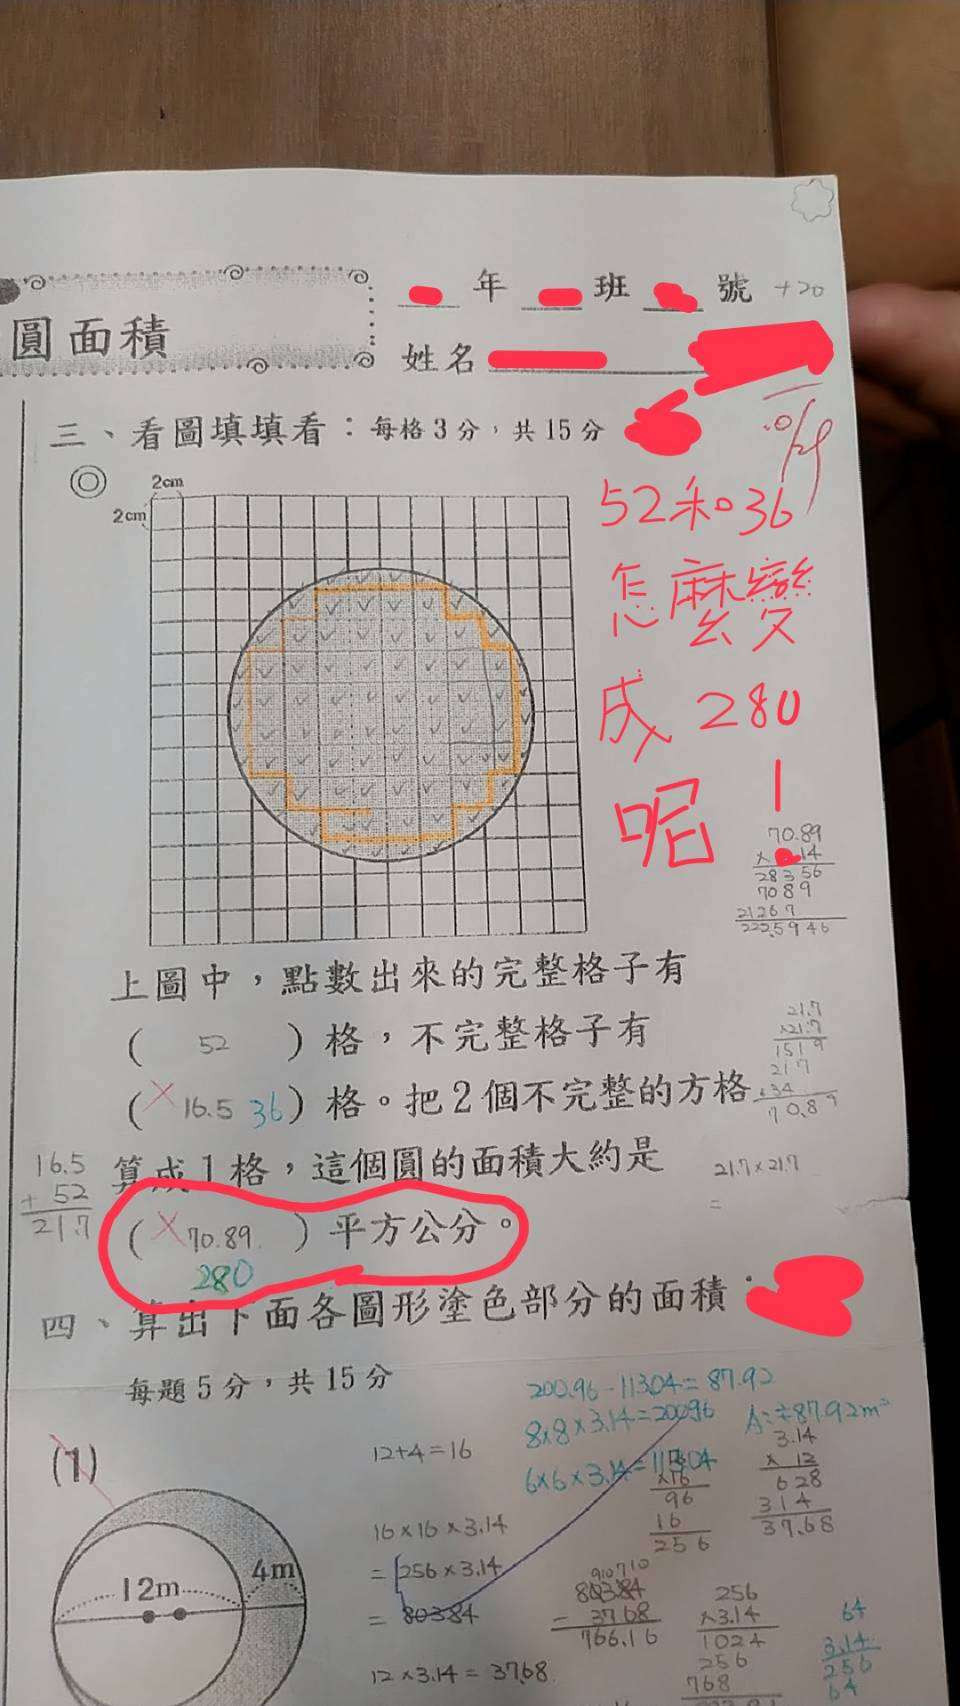 年 班 號 +20
圓面積
姓名
三、看圖填填看：每格3分，共15分
◎
2cm
2cm
52和36
怎麼變
成 280
呢
70.89
28356
7089
21267
222.5946
上圖中，點數出來的完整格子有
( 52 ) 格，不完整格子有
(×16.5 36) 格。把2個不完整的方格
算成1格，這個圓的面積大約是
(×70.89 ) 平方公分。
280
21.7
×21.7
1519
217
70.89
21.7×21.7
=
16.5
+ 52
21.7
四、算出下面各圖形塗色部分的面積：
每題5分，共15分
200.96-113.04=87.92
8×8×3.14=200.96
6×6×3.14=113.04
(1)
12m
4m
12+4=16
16×16×3.14
=256×3.14
=803.84
12×3.14=37.68
×16
96
16
256
3.14
× 12
628
314
37.68
803.84
- 37.68
766.16
256
×3.14
1024
256
768
64
3.14
256
64